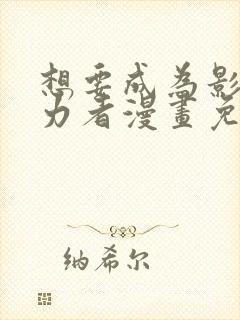 想要成為影
力者漫畫免
纳希尔